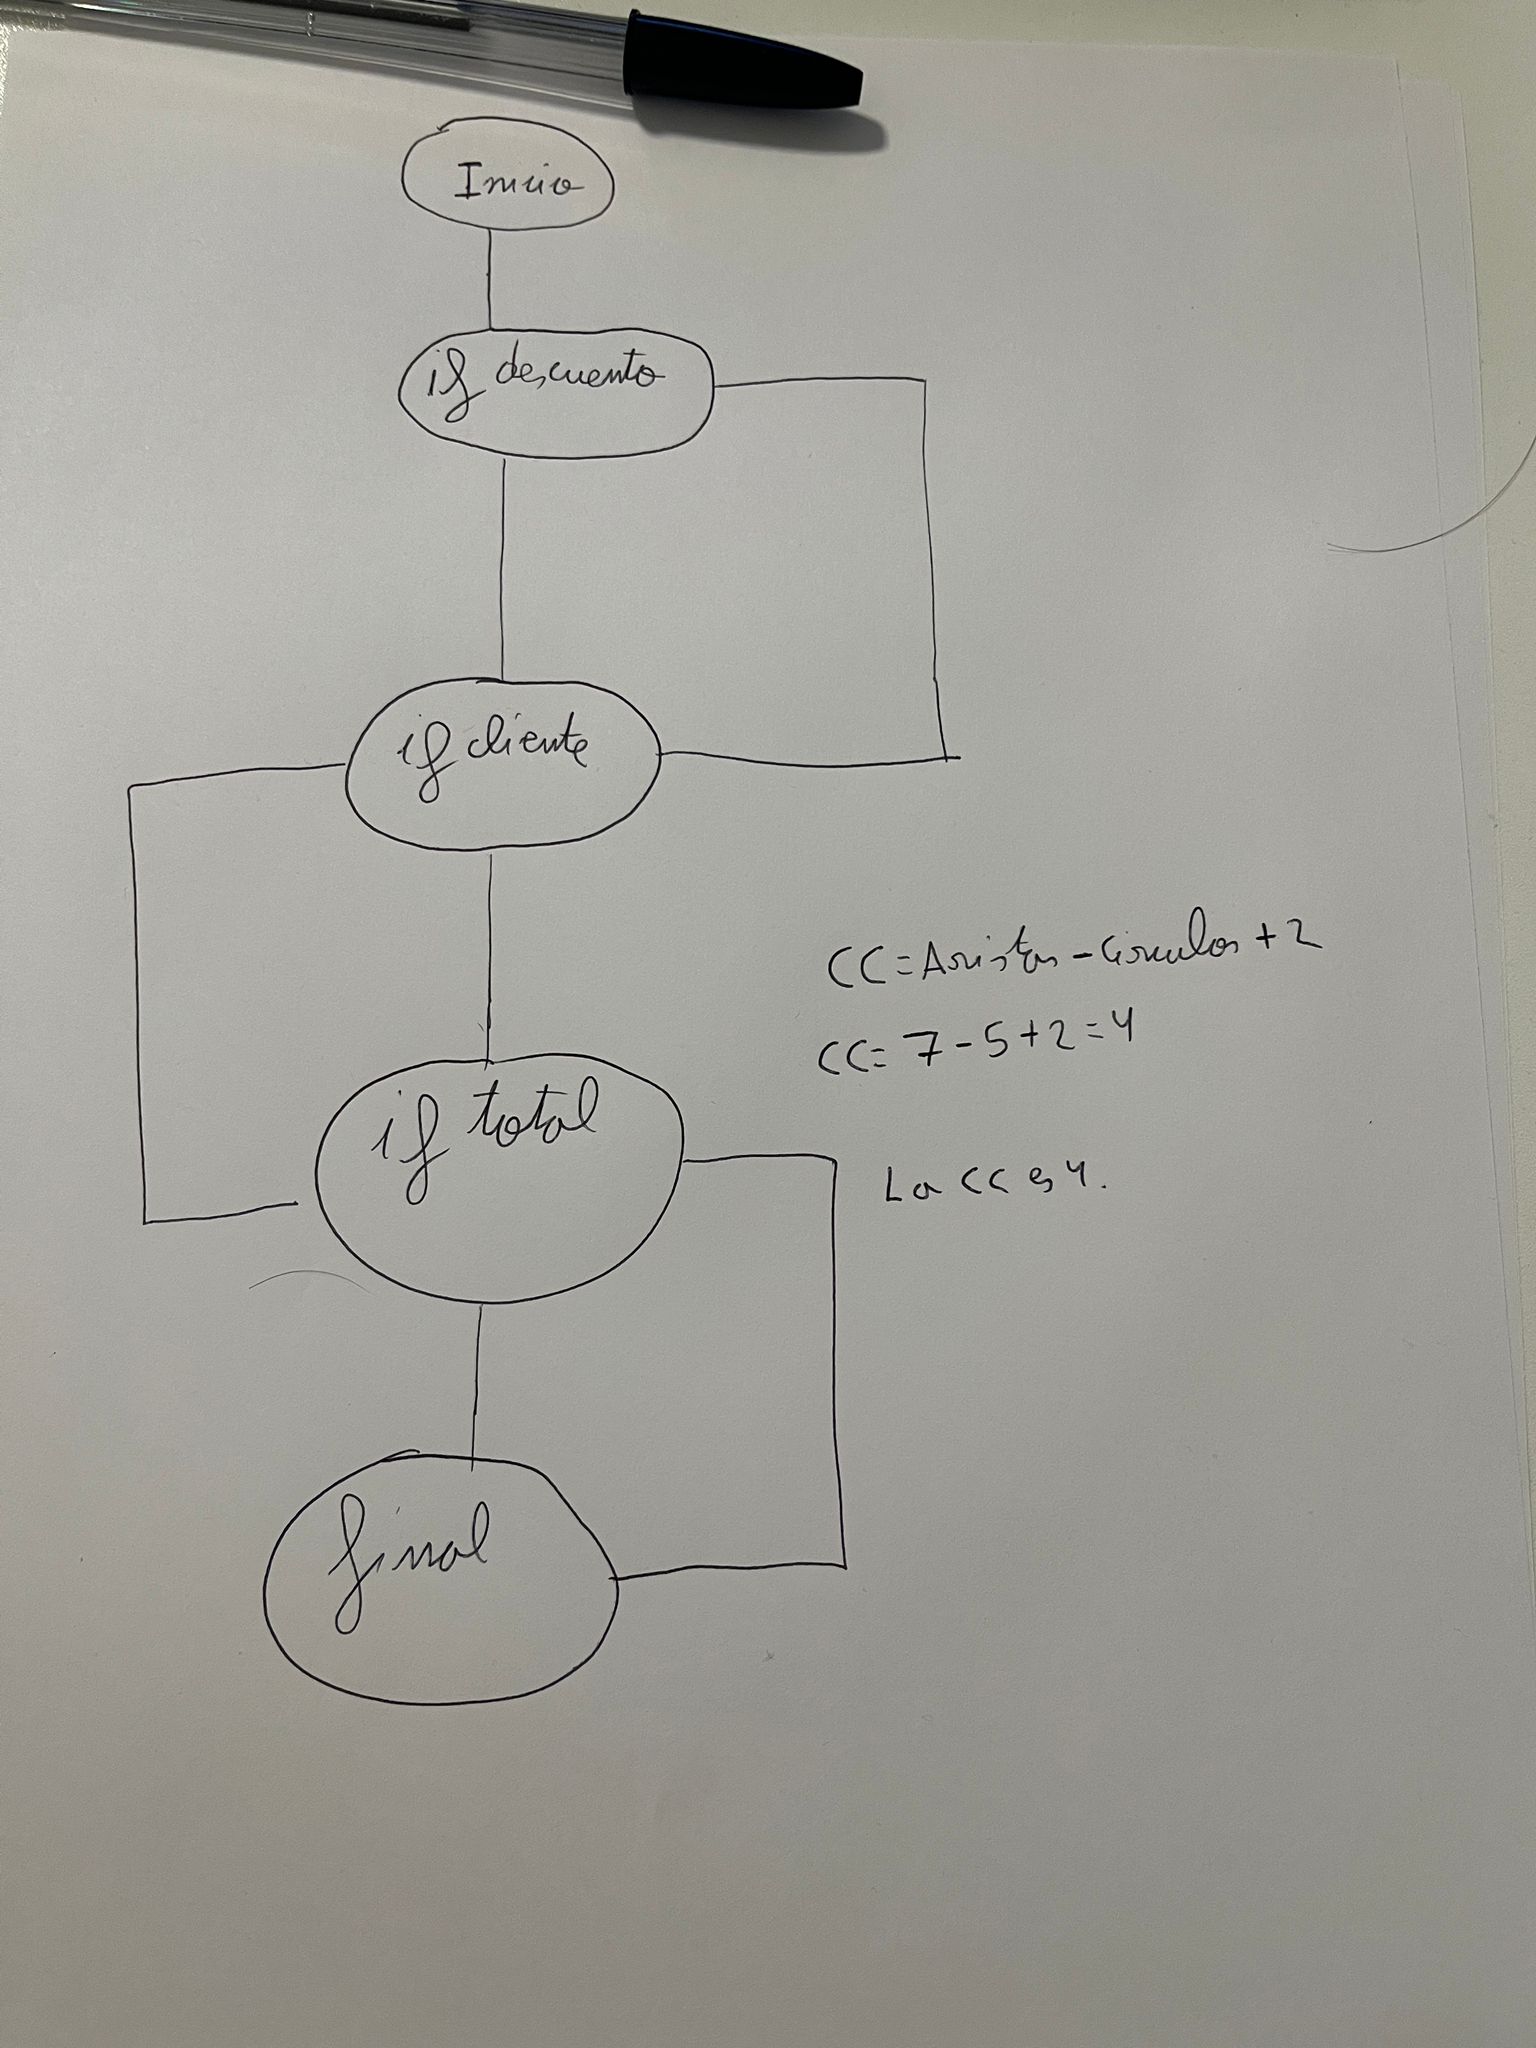 Inicio
if descuento
if cliente
if total
final
CC = Aristas - Circulos + 2
CC = 7 - 5 + 2 = 4
La CC es 4.